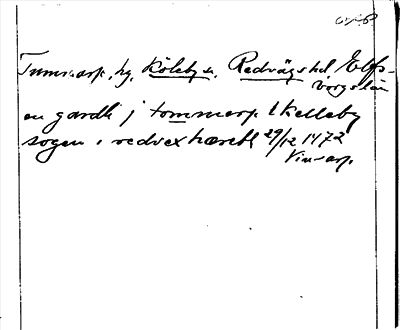 Tummarp, hg, Köleby sn, Redvägs hd, Elfs-
borgs län
en gardh j tommarp Kelleby
sogen i redvex hæreth 29/12 1472
Vinsarp.